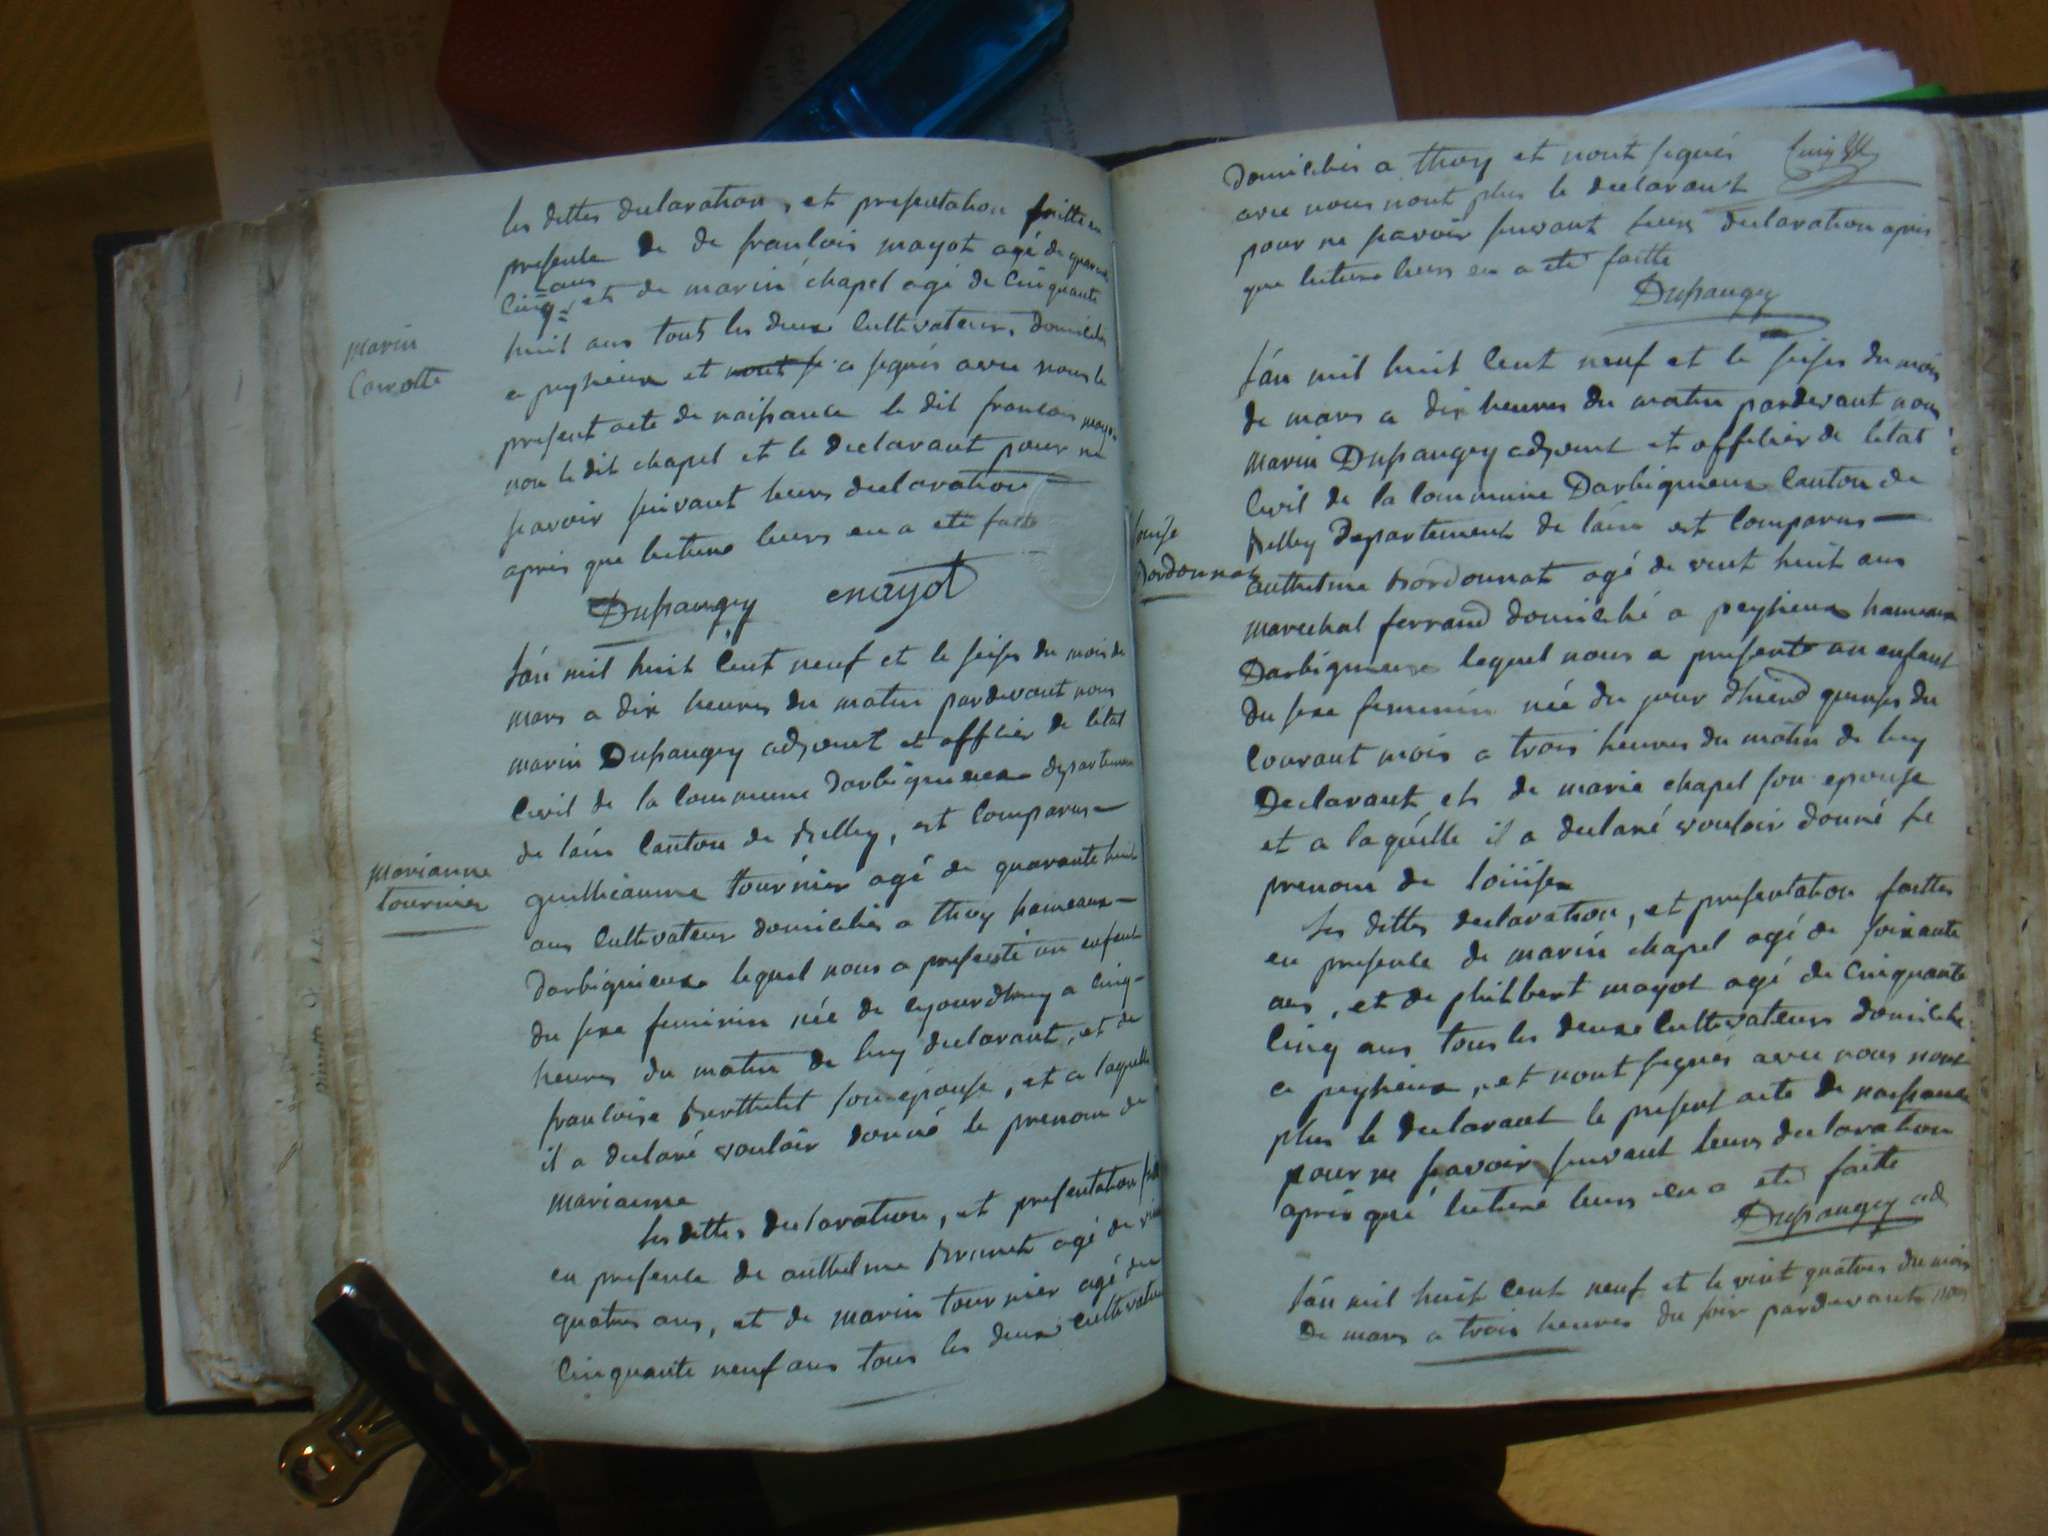 les dittes declaration, et presentation faitte en
presence de de francois mayot agé de quarante
cinq ans et de marin chapel agé de cinquante
huit ans tous les deux cultivateurs domicilies
marin
carrotte
a peysieux et a signés avec nous le
present acte de naissance le dit francois mayot
non le dit chapel et le declarant pour ne
savoir suivant leurs declaration
apres que lecture leurs en a eté faite
Dupaugey mayot
Lán mil huit cent neuf et le seises du mois de
mars a dix heures du matin pardevant nous
marin Dupaugey adjoint et officier de létat
civil de la commune Darbignieux departement
de láin canton de Belley, est comparus
marianne
tournier
guilleaume tournier agé de quarante huit
ans cultivateur domicilies a thoy hameaux
Darbignieux lequel nous a presenté un enfent
du sexe feminin née de cejourdhuy a cinq
heures du matin de luy declarant, et de
francoise Berthelet son epouse, et a laquelle
il a declaré vouloir donné le prenom de
marianne
les dittes declaration, et presentation
en presence de anthelme Brunet agé de
quatres ans, et de marin tournier agé de
cinquante neuf ans tous les deux cultivateurs
Domicilies a thoy et nont signés
avec nous nont plus le declarant
pour ne savoir suivant leurs declaration apres
que lecture leurs en a eté faitte
Dupaugey
Lán mil huit cent neuf et le seises du mois
de mars a dix heures du matin pardevant nous
marin Dupaugey adjoint et officier de letat
civil de la commune Darbignieux canton de
Belley Departement de láin est comparus
Louise
Bordonnat
anthelme Bordonnat agé de vint huit ans
marechal ferrand domicilié a peysieux hameaux
Darbignieux lequel nous a presenté un enfant
du sexe feminin née du jour dhierd quinses du
courant mois a trois heures du matin de luy
Declarant et de marie chapel son epouse
et a laquélle il a declaré vouloir donné le
prenom de Louise
les dittes declaration, et presentation faittes
en presence de marin chapel agé de soixante
ans, et de philibert mayot agé de cinquante
cinq ans tous les deux cultivateurs domicilies
a peysieux, et nont signés avec nous nont
plus le declarant le présent acte de naissance
pour ne savoir suivant leurs declaration
apres qué lecture leurs en a eté faitte
Dupaugey ad
Lán mil huit cent neuf et le vint quatres du mois
de mars a trois heures du soir pardevant nous